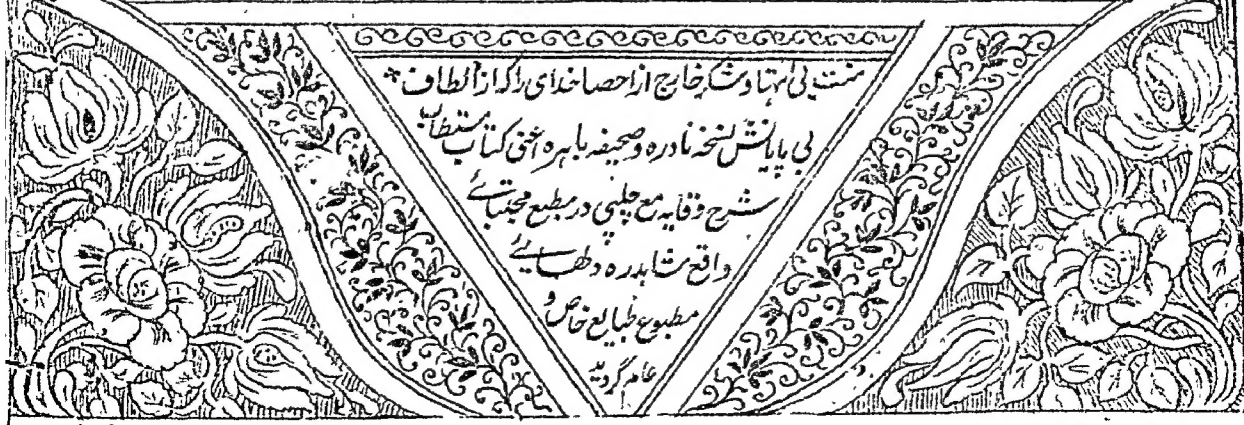 منت بی انتها و شکر خارج از احصا خدای را که از الطاف
بی پایانش نسخه نادره و صحیفه باهره اعنی کتاب مستطاب
شرح وقایه مع چلپی در مطبع مجتبائے
واقع شاہدره دهلے
مطبوع طبایع خاص و
عام گردید